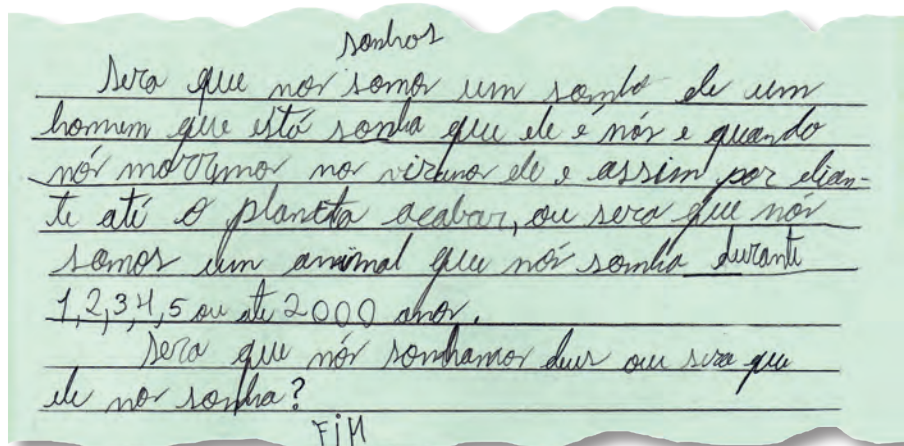 sonhos
Sera que nos somos um sonho de um
homem que está sonha que ele é nós e quando
nós morrmos nos viramos ele e assim por dian-
te até o planeta acabar, ou sera que nós
somos um animal que nós sonha durante
1,2,3,4,5 ou ate 2000 anos.
Sera que nós sonhamos deus ou sera que
ele nos sonha?
FiM